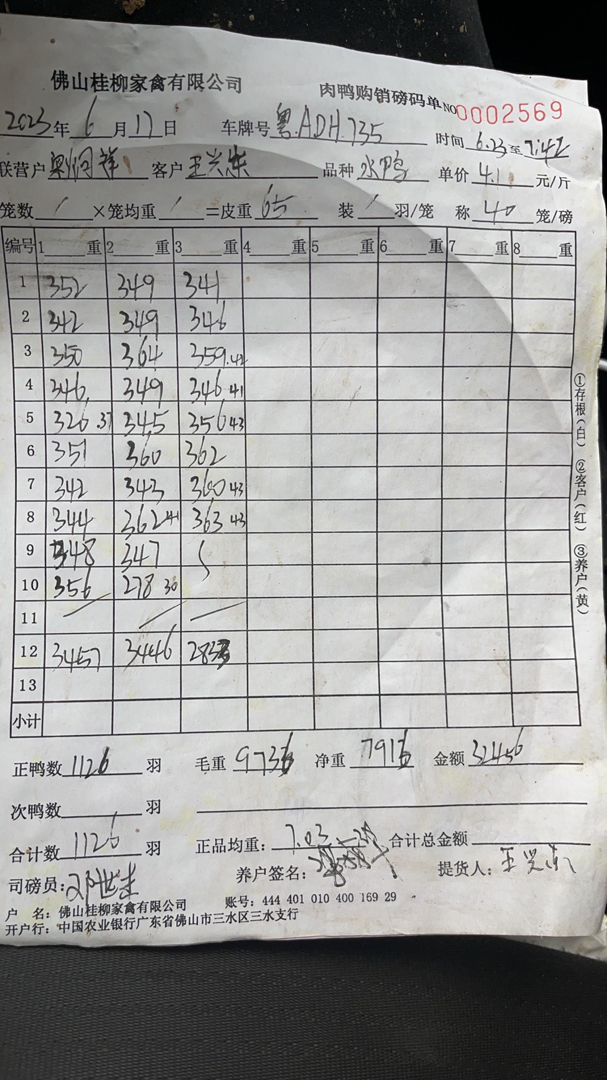 佛山桂柳家禽有限公司 肉鸭购销磅码单 NO 0002569
2023年 6月 17日 车牌号 粤.ADH.735 时间 6.23 至 7.42
联营户 客户 王兴东 品种 水鸭 单价 4.1 元/斤
笼数 / ×笼均重 / =皮重 65 装 / 羽/笼 称 40 笼/磅
编号 1 重 2 重 3 重 4 重 5 重 6 重 7 重 8 重
1 352 349 341
2 342 349 346
3 350 364 359.42
4 346. 349 346 41
5 326 37 345 356 43
6 351 360 362
7 342 343 360 43
8 344 362 41 363 43
9 348 347
10 356 278 30
11
12 3457 3446 283
13
小计
正鸭数 1126 羽 毛重 9736 净重 7916 金额 32456
次鸭数 羽
合计数 1126 羽 正品均重: 7.03 合计总金额
司磅员: 养户签名: 提货人: 王兴东
户 名: 佛山桂柳家禽有限公司 账号: 444 401 010 400 169 29
开户行: 中国农业银行广东省佛山市三水区三水支行
①存根(白) ②客户(红) ③养户(黄)